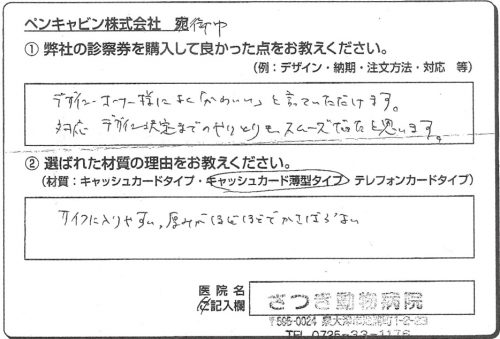 ペンキャビン株式会社 宛 御中
① 弊社の診察券を購入して良かった点をお教えください。
(例：デザイン・納期・注文方法・対応 等)
デザイン…オーナー様によく「かわいい」と言っていただけます。
対応 デザイン決定までのやりとりもスムーズだったと思います。
② 選ばれた材質の理由をお教えください。
(材質：キャッシュカードタイプ・キャッシュカード薄型タイプ・テレフォンカードタイプ)
サイフに入りやすい。厚みがほどほどでかさばらない
医院名
ご記入欄
さつき動物病院
〒595-0024
TEL 0725-33-1176